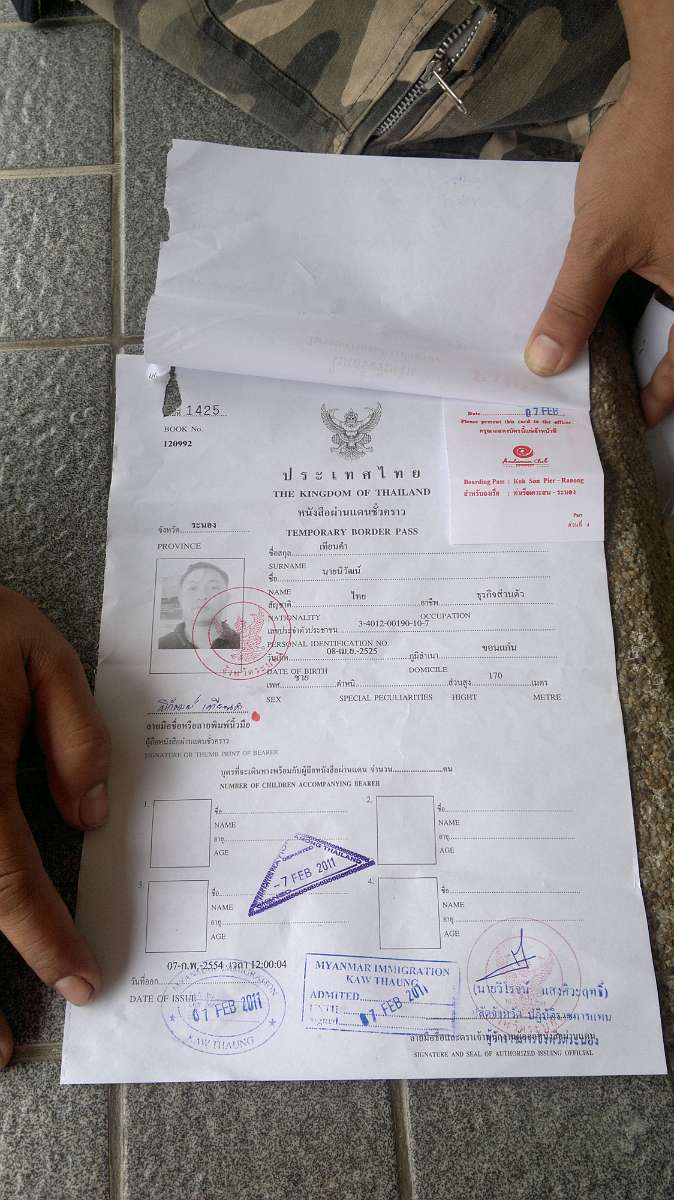 1425
BOOK No.
120992
Date 07 FEB
Please present this card to the officer.
กรุณาแสดงบัตรนี้แก่เจ้าหน้าที่
Andaman Club
Boarding Pass : Koh Son Pier - Ranong
สำหรับลงเรือ : ท่าเรือเกาะสน - ระนอง
Part
ส่วนที่ 4
ประเทศไทย
THE KINGDOM OF THAILAND
หนังสือผ่านแดนชั่วคราว
TEMPORARY BORDER PASS
จังหวัด ระนอง
PROVINCE
ชื่อสกุล เทียนคำ
SURNAME
ชื่อ นายนิวัฒน์
NAME
สัญชาติ ไทย อาชีพ ธุรกิจส่วนตัว
NATIONALITY OCCUPATION
เลขประจำตัวประชาชน 3-4012-00190-10-7
PERSONAL IDENTIFICATION NO.
วันเกิด 08-เม.ย.-2525 ภูมิลำเนา ขอนแก่น
DATE OF BIRTH DOMICILE
เพศ ชาย ตำหนิ ส่วนสูง 170 เมตร
SEX SPECIAL PECULIARITIES HIGHT METRE
ลายมือชื่อหรือลายพิมพ์นิ้วมือ
ผู้ถือหนังสือผ่านแดนชั่วคราว
SIGNATURE OR THUMB PRINT OF BEARER
บุตรที่จะเดินทางพร้อมกับผู้ถือหนังสือผ่านแดน จำนวน คน
NUMBER OF CHILDREN ACCOMPANYING BEARER
1. ชื่อ
NAME
อายุ
AGE
2. ชื่อ
NAME
อายุ
AGE
3. ชื่อ
NAME
อายุ
AGE
4. ชื่อ
NAME
อายุ
AGE
RANONG THAILAND
DEPARTED
-7 FEB 2011
07-ก.พ.-2554 เวลา 12:00:04
วันที่ออก
DATE OF ISSUE
07 FEB 2011
KAW THAUNG
MYANMAR IMMIGRATION
KAW THAUNG
ADMITED
07 FEB 2011
(นายวิโรจน์ แสงศิวะฤทธิ์)
ปลัดจังหวัด ปฏิบัติราชการแทน
ผู้ว่าราชการจังหวัดระนอง
SIGNATURE AND SEAL OF AUTHORIZED ISSUING OFFICIAL